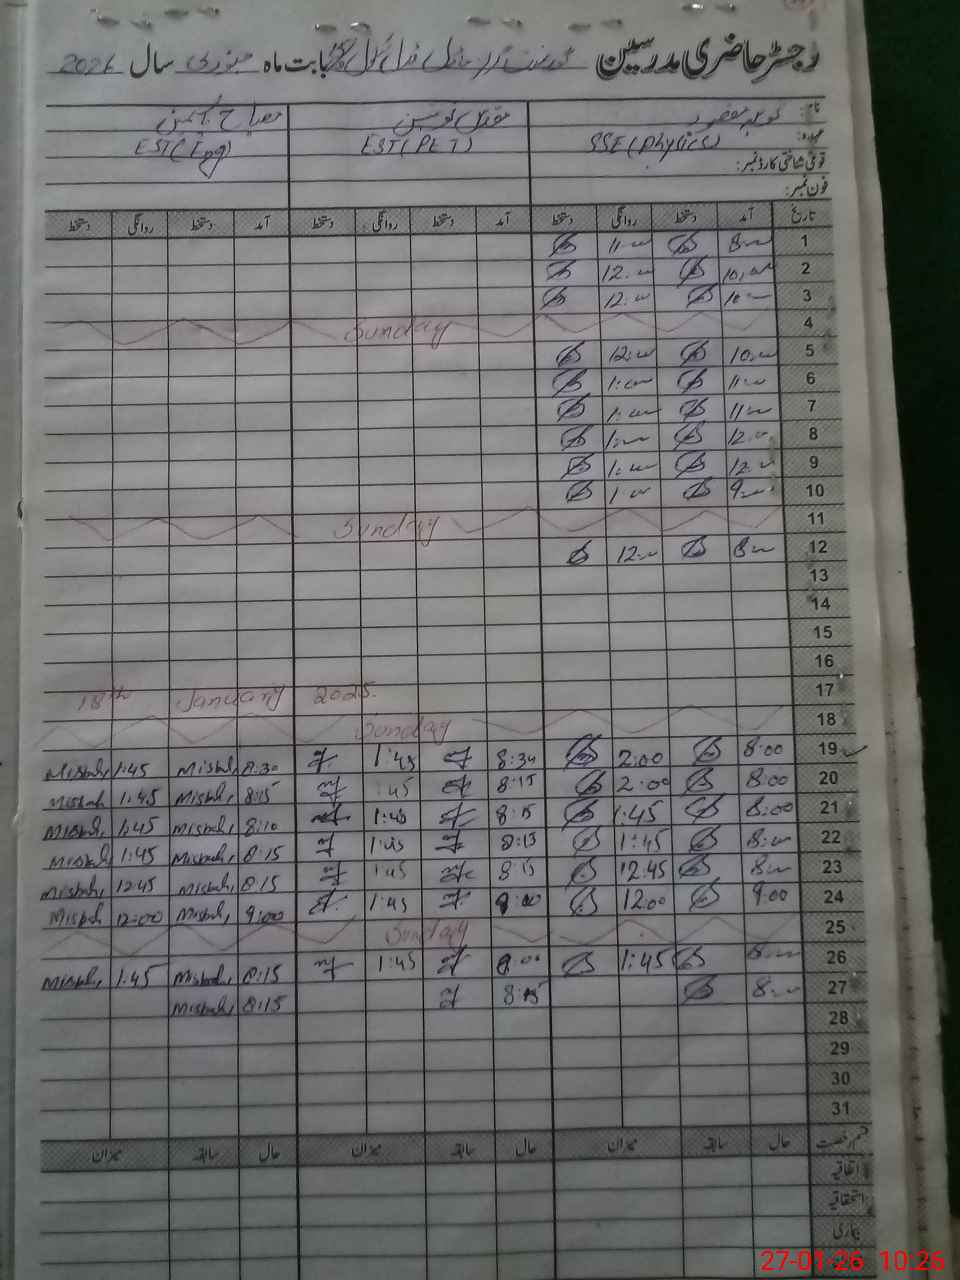 رجسٹر حاضری مدرسین گورنمنٹ گرلز ماڈل سکول بابت ماہ جنوری سال 2026
نام: مصباح
عہدہ: SSE (Physics) EST (PET) EST (Eng)
قومی شناختی کارڈ نمبر:
فون نمبر:
تاریخ آمد دستخط روانگی دستخط آمد دستخط روانگی دستخط آمد دستخط روانگی دستخط
1 8:00 11:00
2 10:00 12:00
3 10:00 12:00
4 Sunday
5 10:00 12:00
6 11:00 1:00
7 11:00 1:00
8 12:00 1:00
9 12:00 1:00
10 9:00 1:00
11 Sunday
12 8:00 12:00
13
14
15
16
17 18th January 2025.
18 Sunday
19 8:00 2:00 8:30 1:45 8:30 Misbah 1:45 Misbah
20 8:00 2:00 8:15 :45 8:15 Misbah 1:45 Misbah
21 8:00 1:45 8:15 1:45 8:10 Misbah 1:45 Misbah
22 8:00 1:45 8:15 1:45 8:15 Misbah 1:45 Misbah
23 8:00 12:45 8:15 1:45 8:15 Misbah 12:45 Misbah
24 9:00 12:00 9:00 1:45 9:00 Misbah 12:00 Misbah
25 Sunday
26 8:00 1:45 8:00 1:45 8:15 Misbah 1:45 Misbah
27 8:00 8:15 8:15 Misbah
28
29
30
31
قسم رخصت حال سابقہ میزان حال سابقہ میزان حال سابقہ میزان
اتفاقیہ
استحقاقیہ
بیماری
27-01-26 10:26